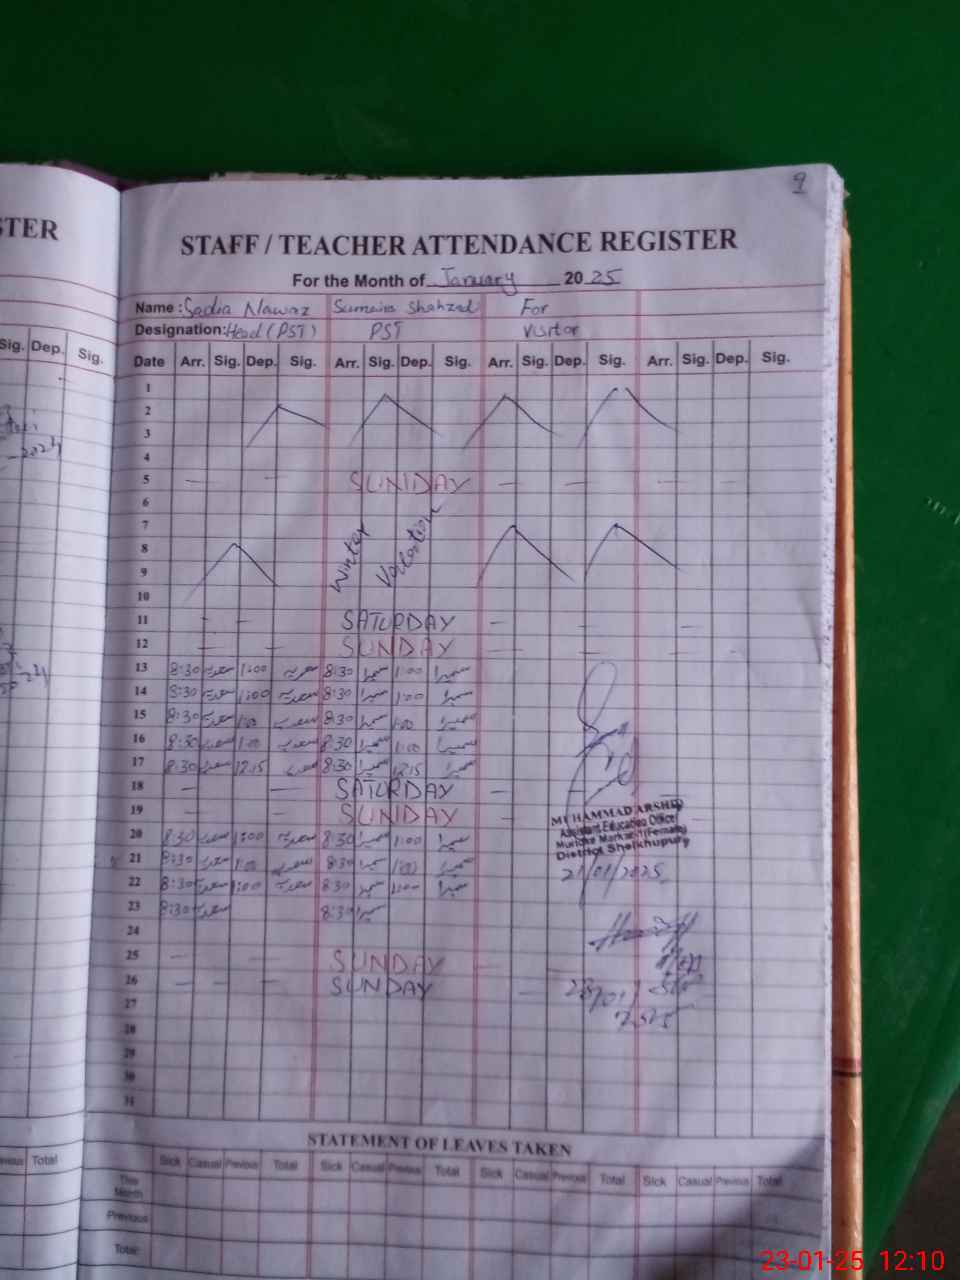 9
STER
STAFF / TEACHER ATTENDANCE REGISTER
For the Month of January 2025
Name: Sadia Nawaz Sumaira Shahzad For
Designation: Head (PST) PST Visitor
Sig. Dep. Sig.
Date Arr. Sig. Dep. Sig. Arr. Sig. Dep. Sig. Arr. Sig. Dep. Sig. Arr. Sig. Dep. Sig.
1
2
3
4
5 SUNDAY
6
7
8
9
Winter Vacation
10
11 SATURDAY
12 SUNDAY
13 8:30 1:00 8:30 سمیرا 1:00 سمیرا
14 8:30 1:00 8:30 سمیرا 1:00 سمیرا
15 8:30 1:00 8:30 سمیرا 1:00 سمیرا
16 8:30 1:00 8:30 سمیرا 1:00 سمیرا
17 8:30 12:15 8:30 سمیرا 12:15 سمیرا
18 SATURDAY
19 SUNDAY
MUHAMMAD ARSHED
Assistant Education Officer
Muridke Markaz (Female)
District Sheikhupura
20 8:30 1:00 8:30 سمیرا 1:00 سمیرا
21 8:30 1:00 8:30 سمیرا 1:00 سمیرا
21/01/2025
22 8:30 1:00 8:30 سمیرا 1:00 سمیرا
23 8:30 8:30 سمیرا
24
25 SUNDAY
26 SUNDAY
27
28
29
30
31
STATEMENT OF LEAVES TAKEN
Previous Total
Sick Casual Previous Total Sick Casual Previous Total Sick Casual Previous Total Sick Casual Previous Total
This Month
Previous
Total
23-01-25 12:10